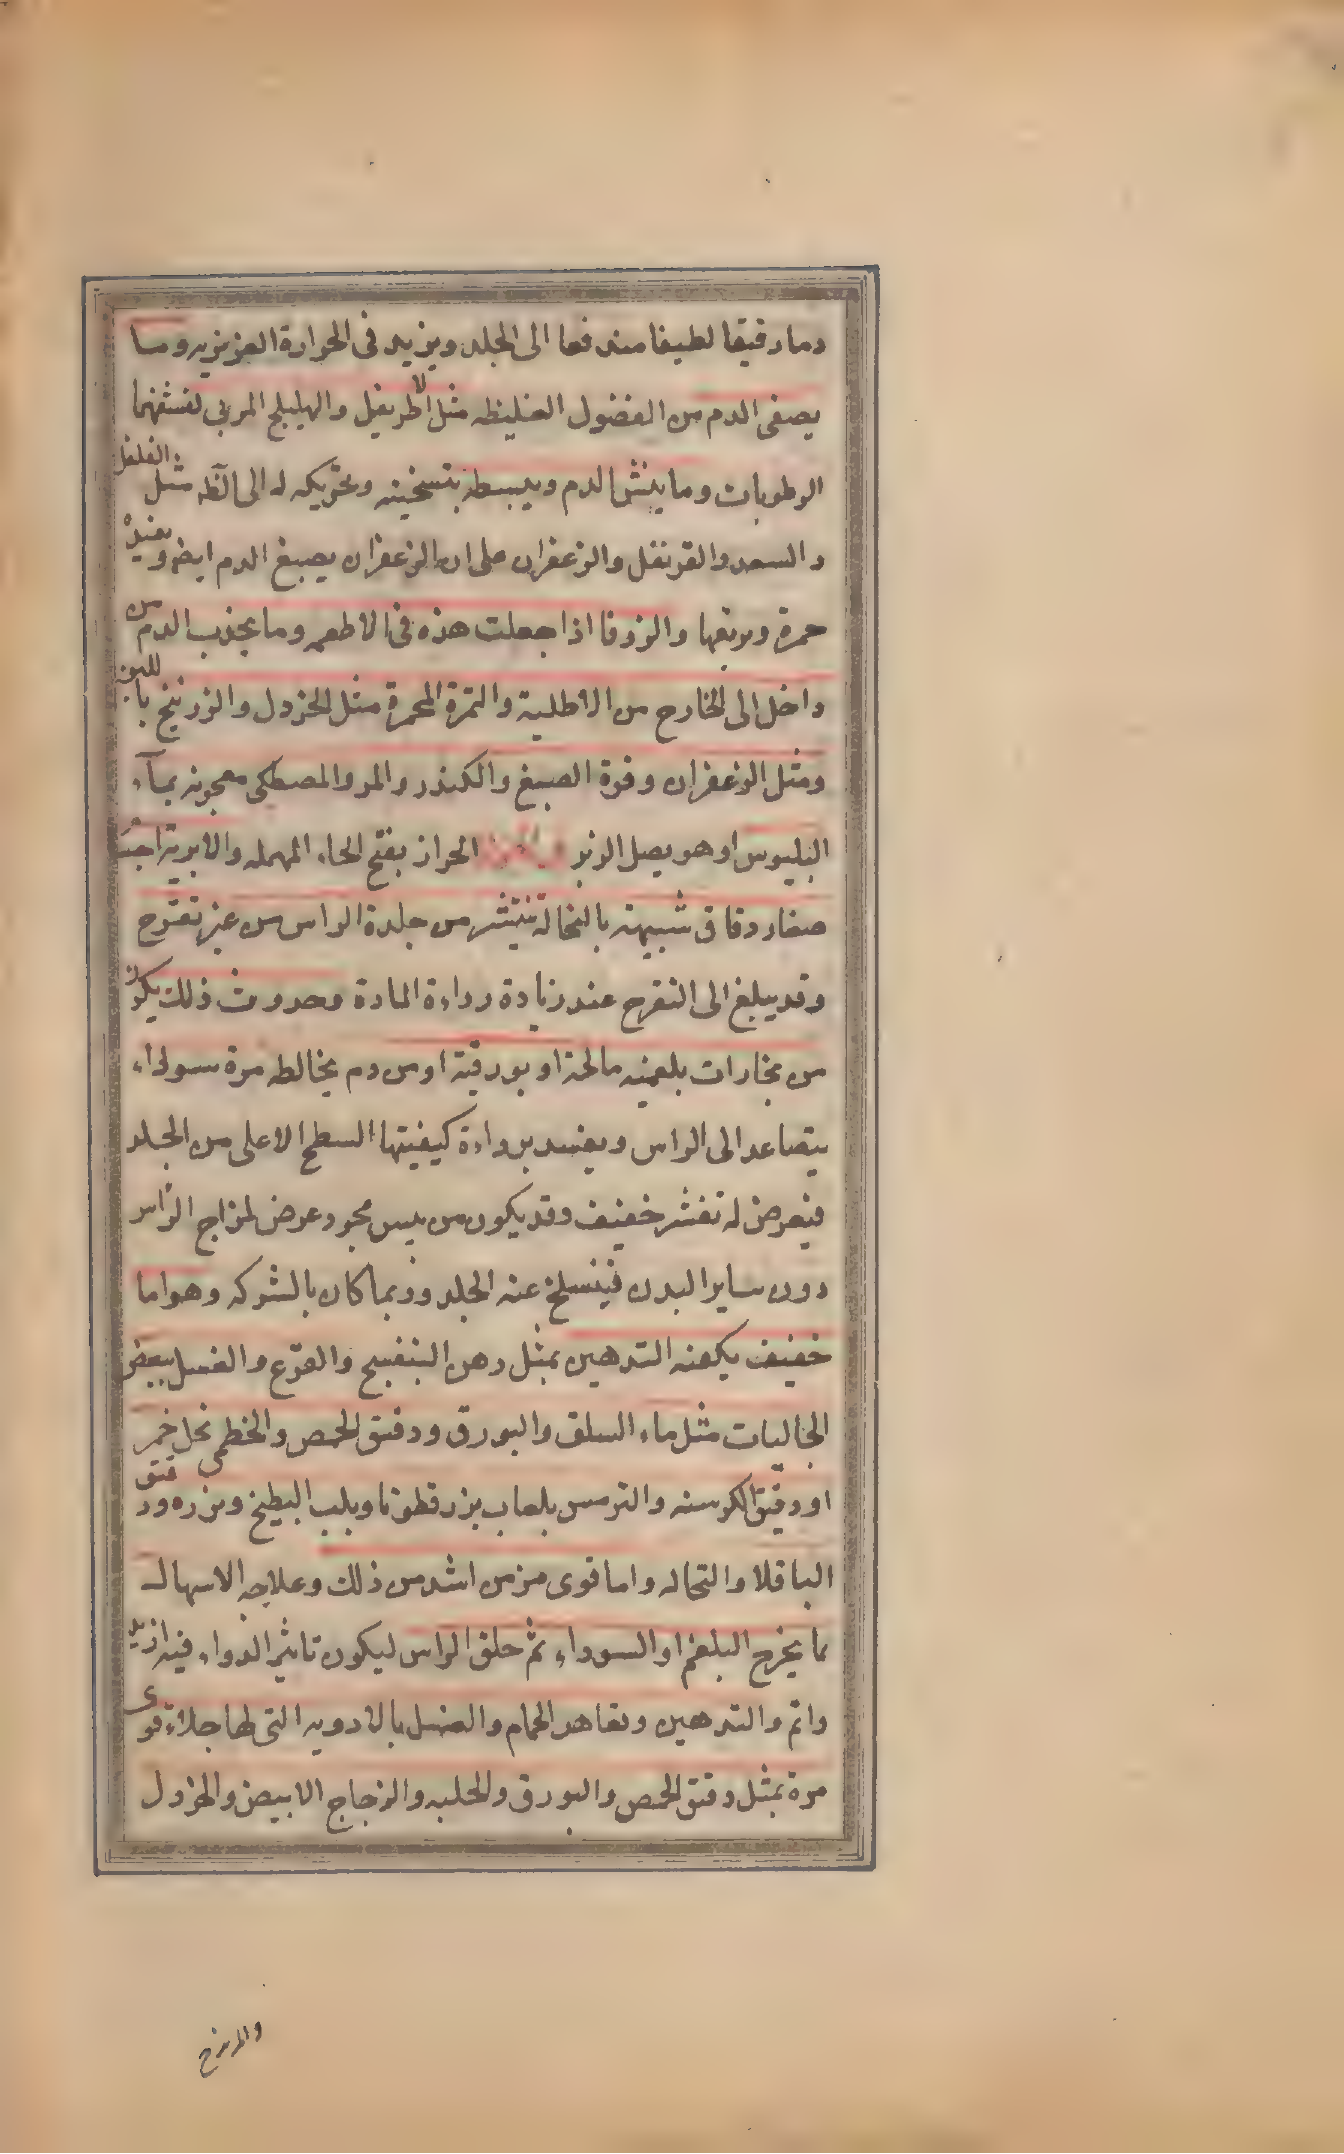 دما رقيقا لطيفا مندفعا الى الجلد ويزيد فى الحرارة الغريزيه وما
يصفى الدم من الفضول الغليظه مثل الاطريفل والهليلج المربى لنشفهما
الرطوبات وما ينشر الدم ويبسطه بتسخينه وتحريكه له الى الظ مثل الفلفل
و السعد والقرنفل والزعفران على ان الزعفران يصبغ الدم ايض ويفيده
حمرة وبريقها والزوفا اذا جعلت هذه فى الاطعمه وما يجذب الدم من
داخل الى الخارج من الاطلية والتمرة المحمرة مثل الخردل والزرنيخ باللبن
ومثل الزعفران وفوة الصبغ والكندر والمر والمصطكى معجونه بمآء
البلبوس او هو بصل الزير الحزاز بفتح الحاء المهمله والابرية اجسا
صغار دقاق شبيهة بالنخالة تنتثر من جلدة الراس من غير تقرح
وقد يبلغ الى التقرح عند زيادة رداءة المادة وحدوث ذلك يكون
من بخارات بلغميه مالحة او بورقية او من دم يخالطه مرة سوداء
يتصاعد الى الراس ويفسد برداءة كيفيتها السطح الاعلى من الجلد
فيعرض له تقشر خفيف وقد يكون من يبس مجرد عرض لمزاج الراس
دون ساير البدن فينسلخ عنه الجلد وربما كان بالشركه وهو اما
خفيف يكفيه التدهين بمثل دهن البنفسج والقرع والغسل ببعض
الجاليات مثل ماء السلق والبورق ودقيق الحمص والخطمى بخل خمر
او دقيق الكرسنه والترمس بلعاب بزرقطونا وبلب البطيخ وبزره ودقيق
الباقلا والنخاله واما قوى مزمن اشد من ذلك وعلاجه الاسهال
بما يخرج البلغم او السوداء ثم حلق الراس ليكون تاثير الدواء فيه ازيد
واتم والتدهين وتعاهد الحمام والغسل بالادويه التى لها جلاء قوى
مرة بمثل دقيق الحمص والبورق والحلبه والزجاج الابيض والخردل